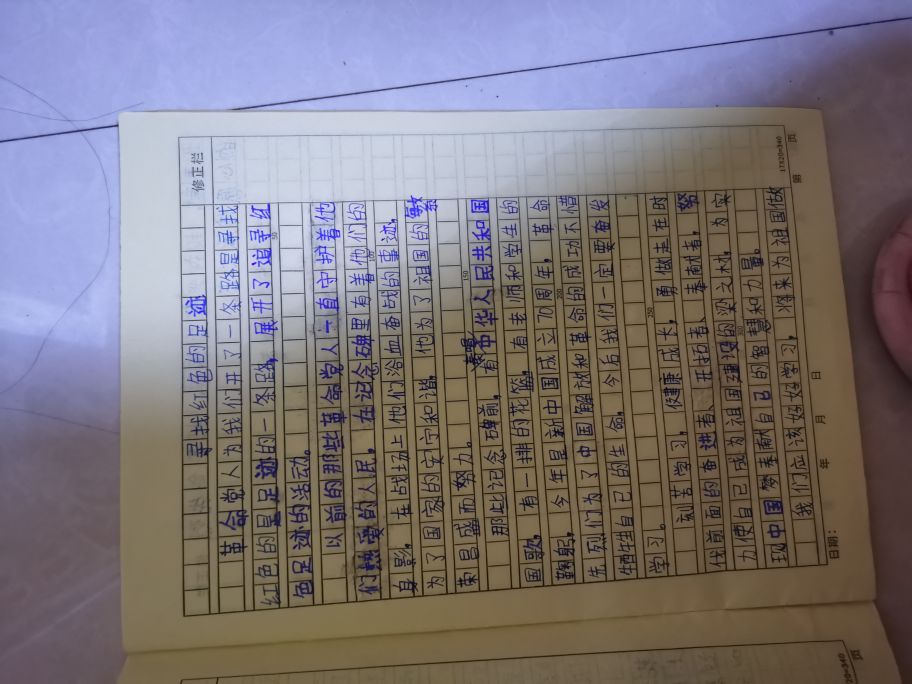 修正栏
寻找红色的足迹
革命党人为我们开了一条路是寻找
红色的是足迹的一条路，展开了追寻红
色足迹的活动。
以前的那些革命党人一直守护着他
们热爱的人民，在记念碑里有着他们的
身影，在战场上他们浴血奋战的事迹，
为了国家的安宁和谐，他为了祖国的繁
荣昌盛而努力。
那些记念碑前，有中华人民共和国
国歌，有一排的花篮，有老师和学生的
鞠躬，今年是新中国成立70周年，革命
先烈们为了中国解放和革命的成功不惜
牺牲自己的生命，今后我们一定要奋发
学习。
刻苦学习，健康成长，勇做走在时
代前面的奋进者、开拓者、奉献者，努
力使自己成为祖国建设的梁之材，为实
现中国梦奉献自己的智慧和力量。
我们应该好好学习，将来为祖国做
17X20=340
日期： 年 月 日
册 页
20=340
页